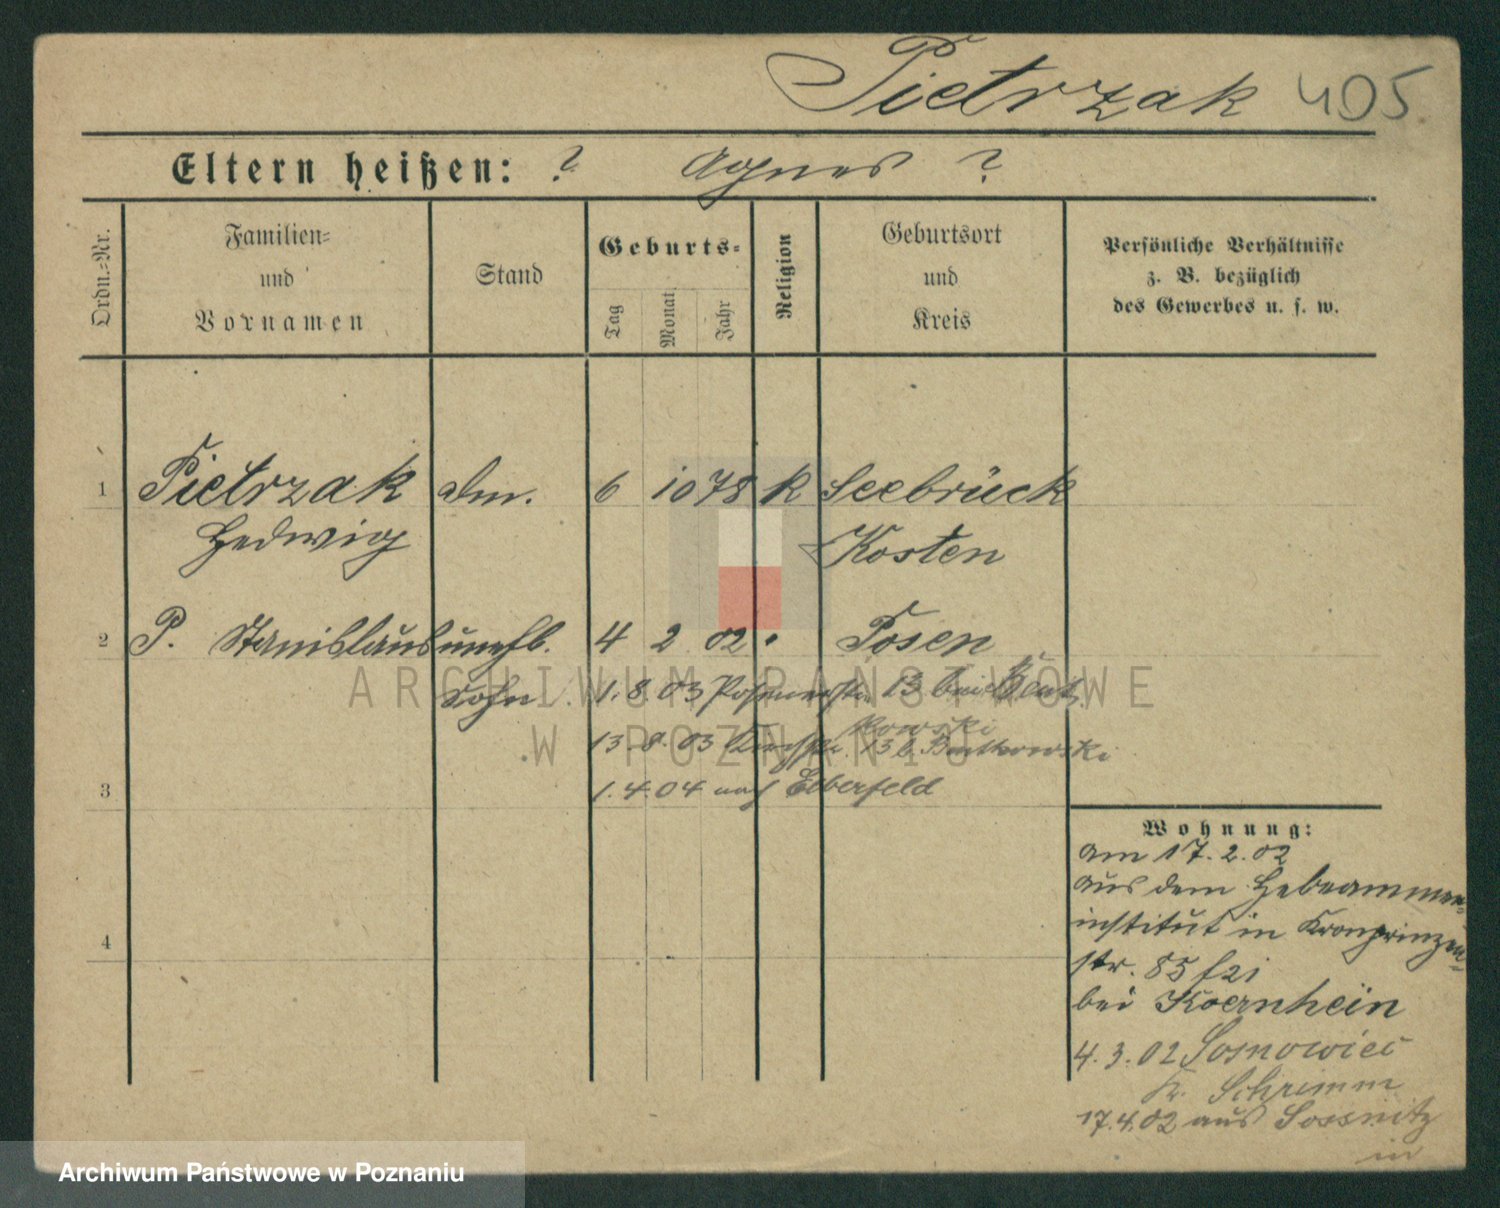 Pietrzak 405.
Eltern heißen: ? Agnes ?
Ordn.-Nr.
Familien-
und
Vornamen
Stand
Geburts-
Tag
Monat
Jahr
Religion
Geburtsort
und
Kreis
Persönliche Verhältnisse
z. B. bezüglich
des Gewerbes u. s. w.
1 Pietrzak 6 10 78 K Seebrück
Hedwig Kosten
2 P. Stanislaus unehl. 4 2 02 Posen
Sohn 1.8.03 13 bei
kowski
13.8.03 13 b. Butkowski
3 1.4.04 nach Elberfeld
4
Wohnung:
am 17.2.02
aus dem Hebeammen-
institut in Kronprinzen-
str. 85
bei Koernhein
4.3.02 Sosnowiec
Kr. Schrimm
17.4.02 aus Sossnitz
in
ARCHIWUM PAŃSTWOWE
W POZNANIU
Archiwum Państwowe w Poznaniu